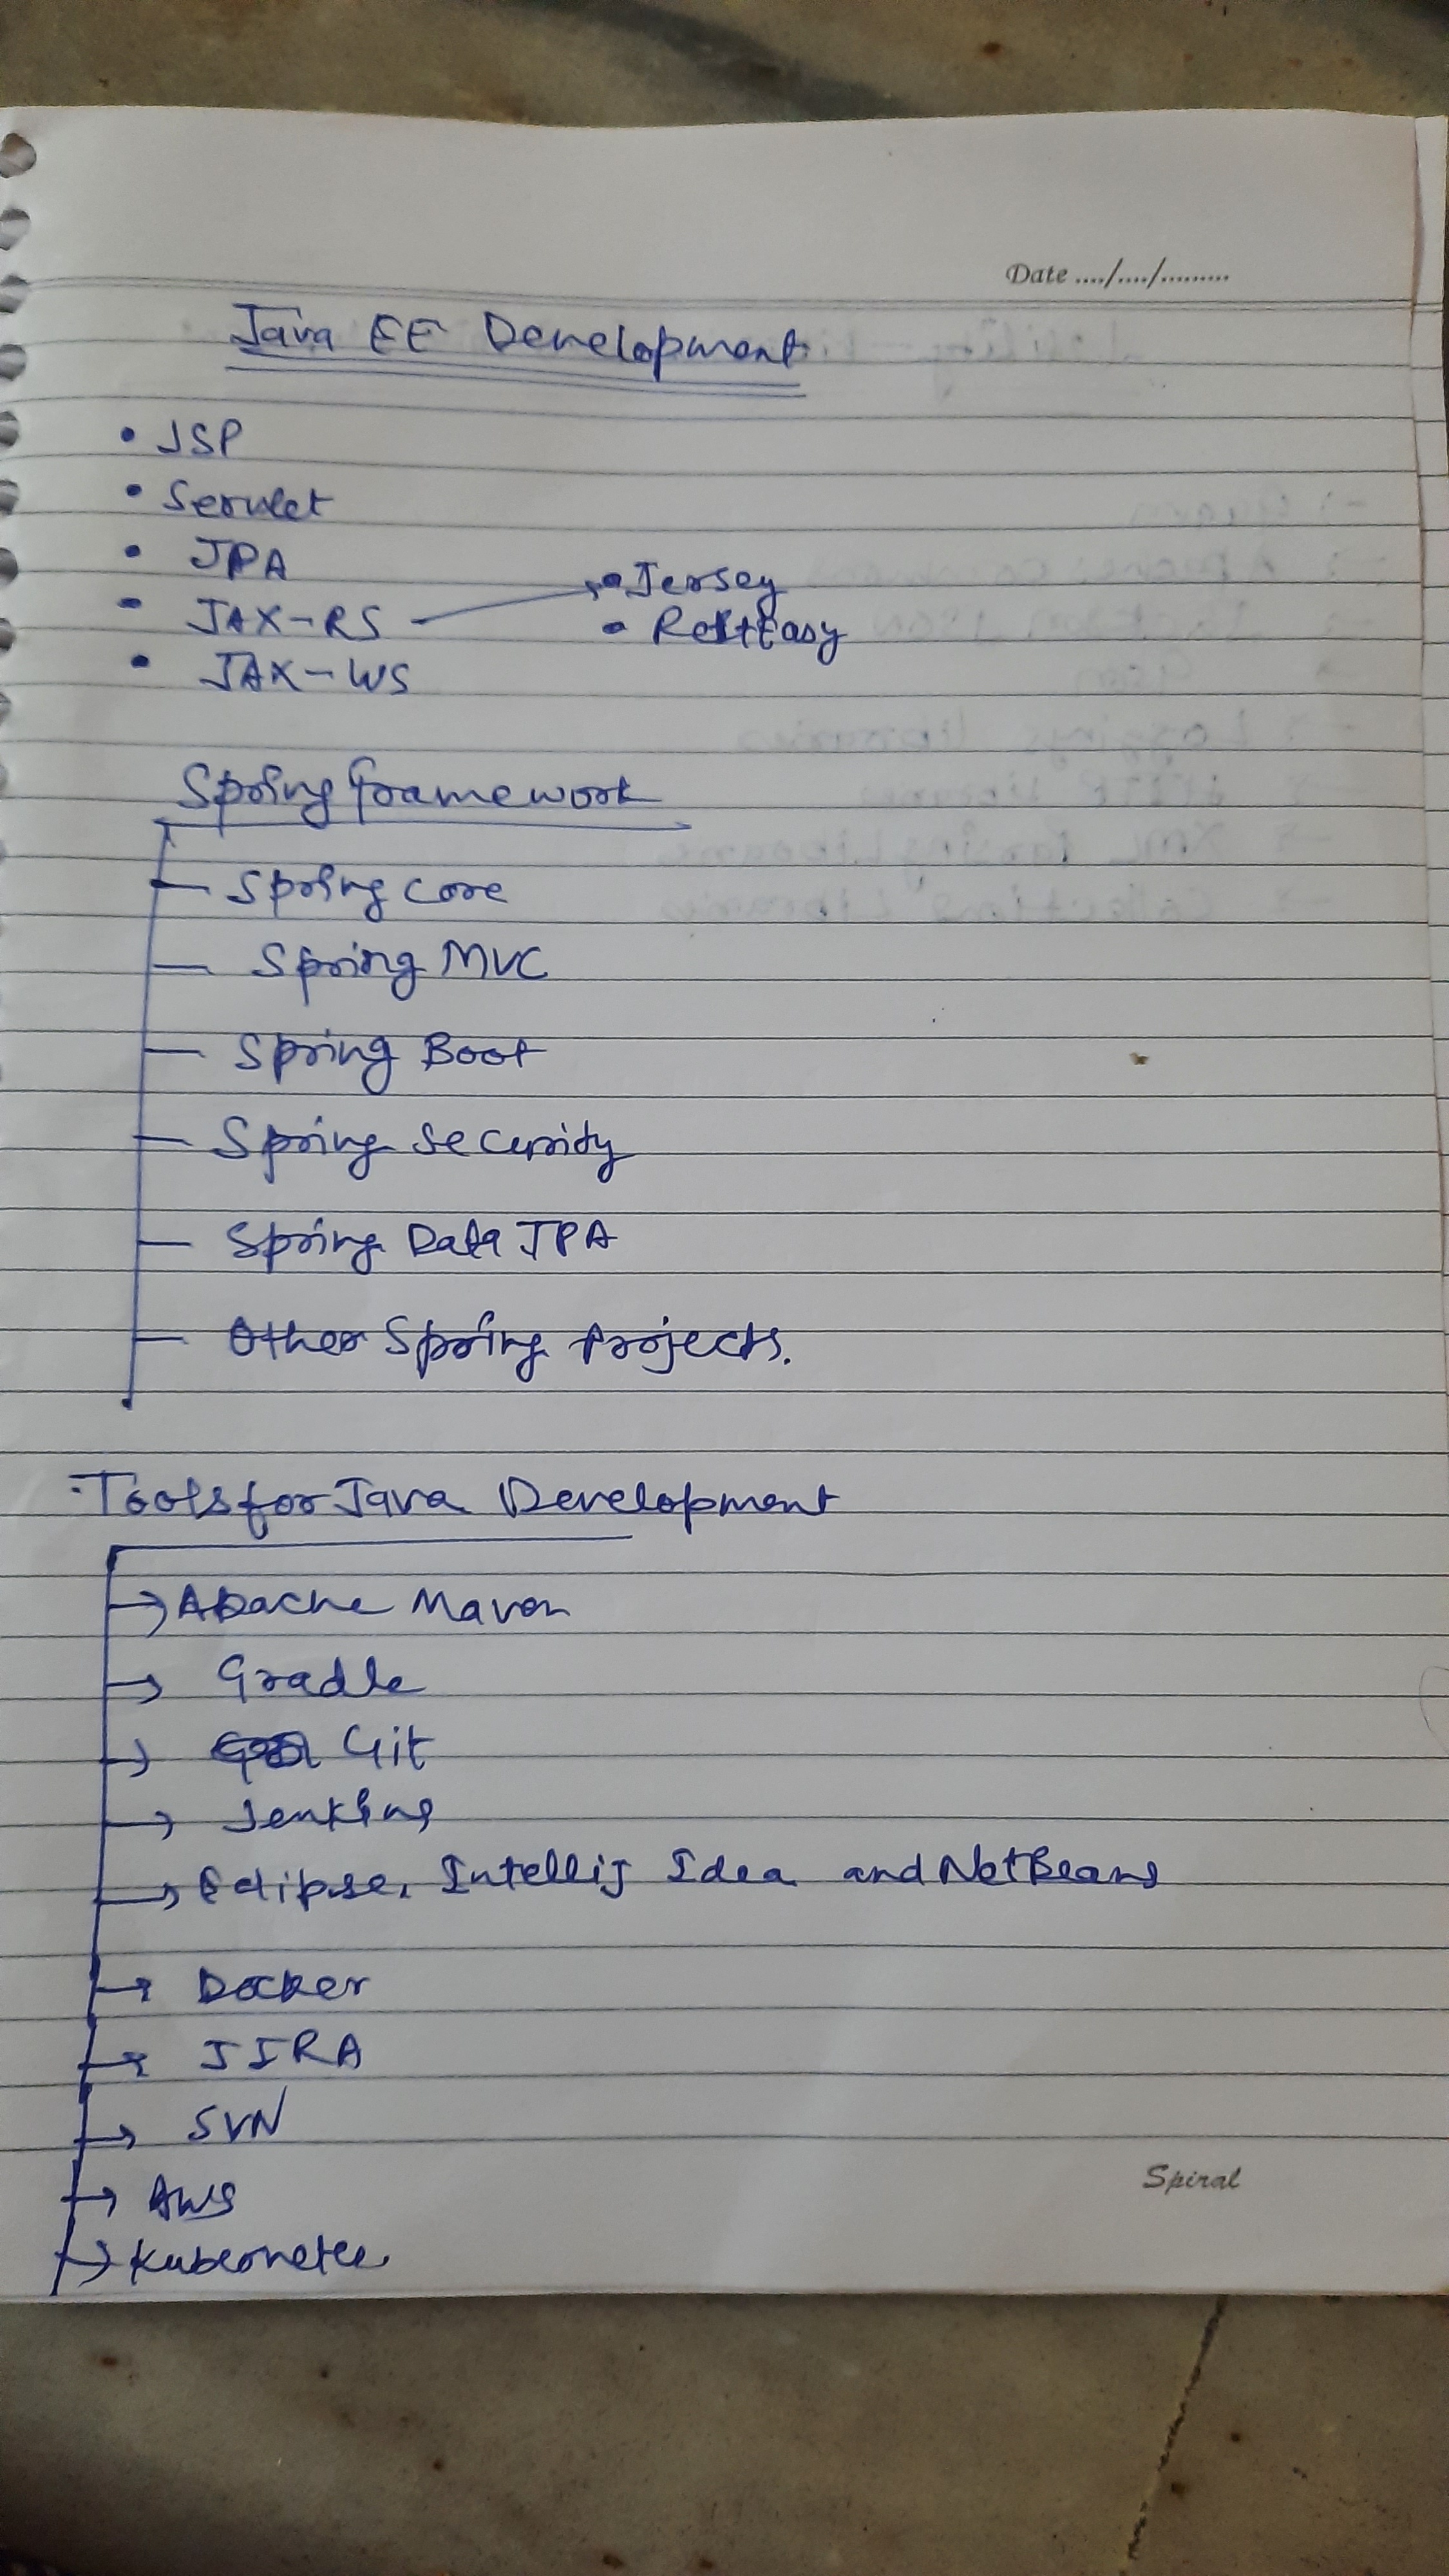 Date ..../..../.........
Java EE Development
• JSP
• Servlet
• JPA
• Jersey
• JAX-RS
• RestEasy
• JAX-WS
Spring framework
- Spring core
- Spring MVC
- Spring Boot
- Spring Security
- Spring Data JPA
- Other Spring Projects.
Tools for Java Development
→ Apache Maven
→ Gradle
→ Git
→ Jenkins
→ Eclipse, Intellij Idea and NetBeans
→ Docker
→ JIRA
→ SVN
→ AWS
→ Kubernetes
Spiral